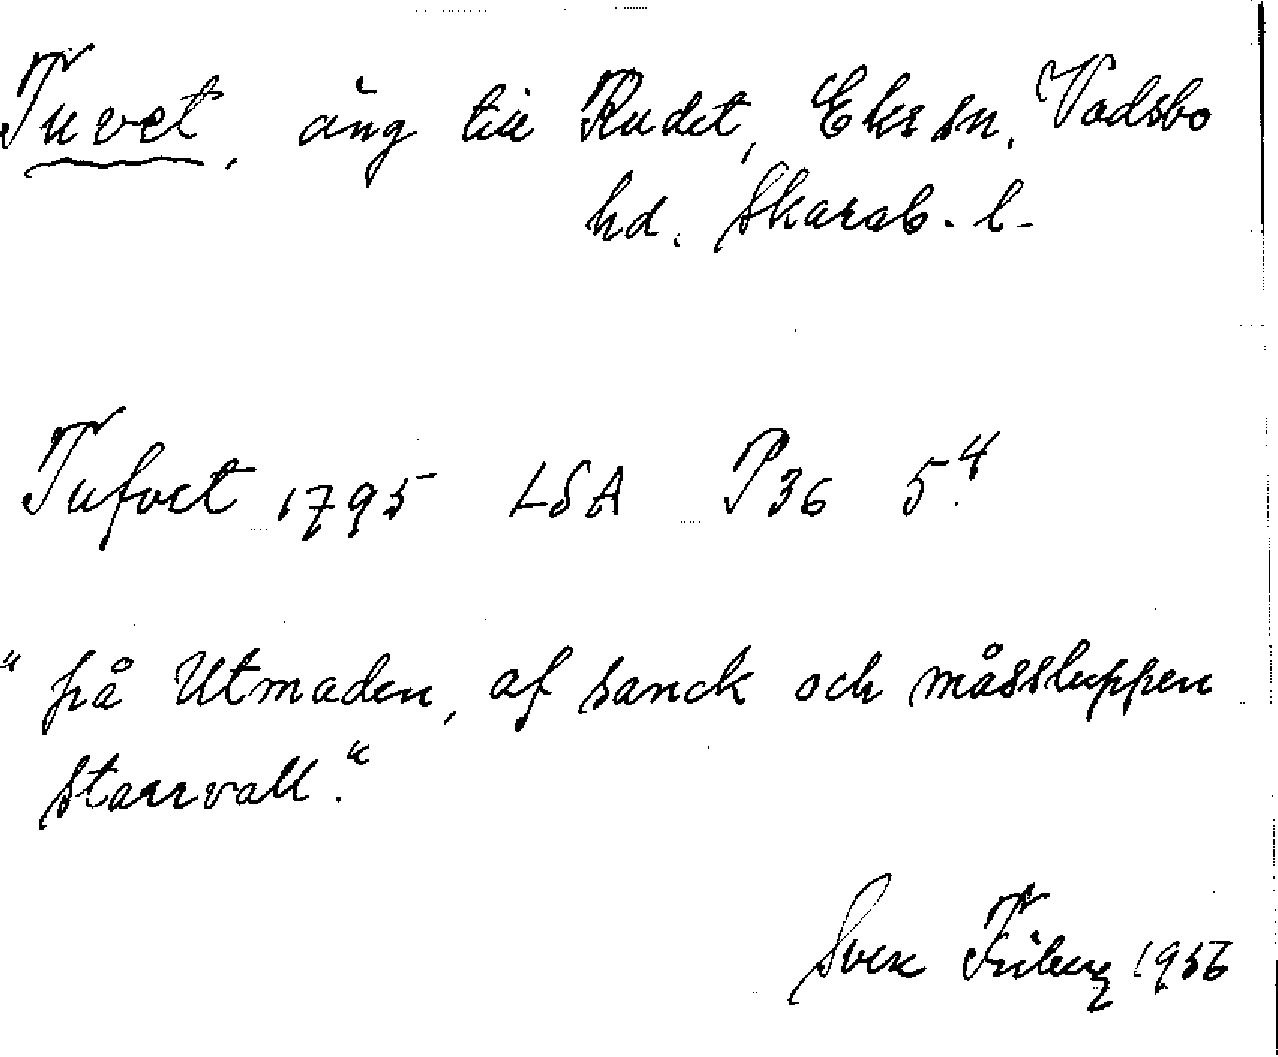 Tuvet, äng till Rudet, Eks sn, Vadsbo
hd. Skarab. l-
Tufvet 1795 LSA P36 5:4
"på Utmaden, af sanck och måssluppen
starrvall."
Sven Friberg 1956